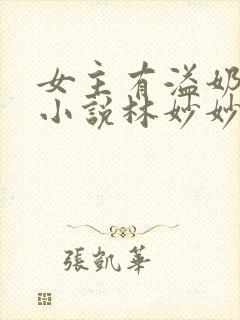 女主有溢奶
小說林妙妙
張凱華